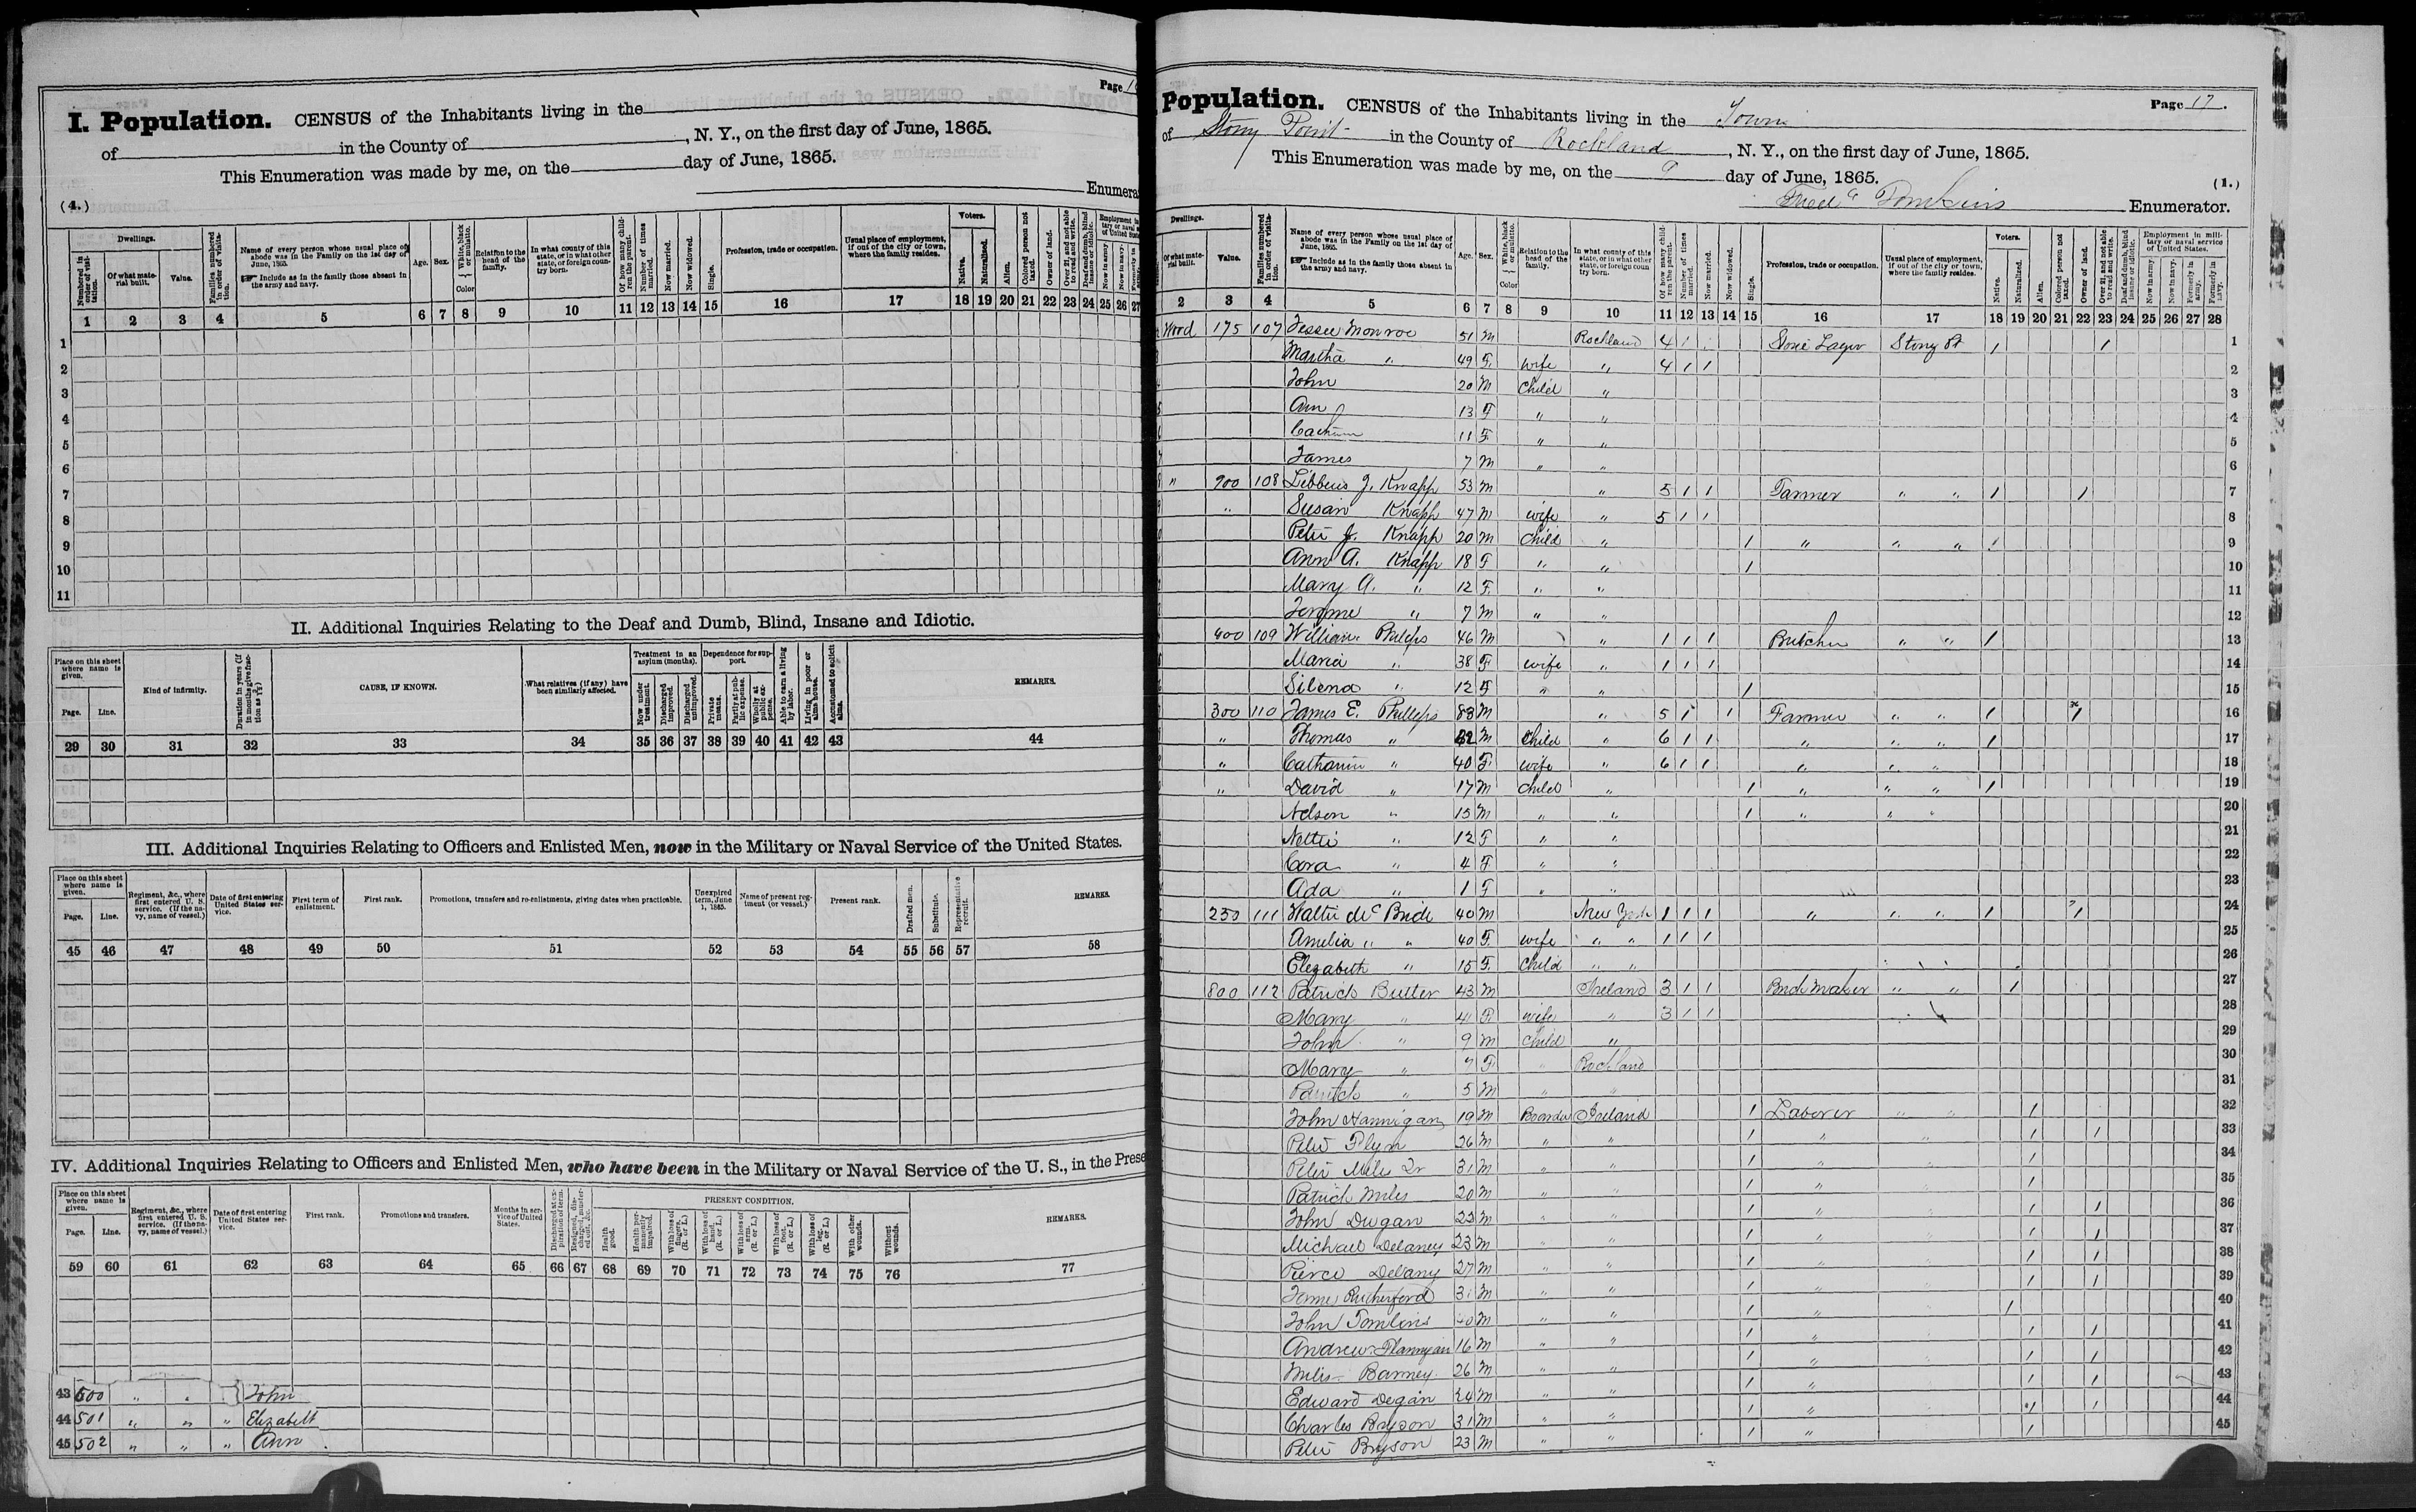 Page 1
I. Population. CENSUS of the Inhabitants living in the
of in the County of , N. Y., on the first day of June, 1865.
This Enumeration was made by me, on the day of June, 1865.
Enumera
(4.)
Dwellings.
Numbered in order of visitation.
Of what material built.
Value.
Families numbered in order of visitation.
Name of every person whose usual place of abode was in the Family on the 1st day of June, 1865.
Include as in the family those absent in the army and navy.
Age.
Sex.
White, black or mulatto.
Color
Relation to the head of the family.
In what county of this state, or in what other state, or foreign country born.
Of how many children the parent.
Number of times married.
Now married.
Now widowed.
Single.
Profession, trade or occupation.
Usual place of employment, if out of the city or town, where the family resides.
Voters.
Native.
Naturalized.
Alien.
Colored person not taxed.
Owner of land.
Over 21, and not able to read and write.
Deaf and dumb, blind insane or idiotic.
Now in army.
Now in navy.
1 2 3 4 5 6 7 8 9 10 11 12 13 14 15 16 17 18 19 20 21 22 23 24 25 26 27
1
2
3
4
5
6
7
8
9
10
11
II. Additional Inquiries Relating to the Deaf and Dumb, Blind, Insane and Idiotic.
Place on this sheet where name is given.
Page.
Line.
Kind of infirmity.
CAUSE, IF KNOWN.
What relatives (if any) have been similarly affected.
Treatment in an asylum (months).
Now under treatment.
Discharged improved.
Discharged unimproved.
Dependence for support.
Private means.
Partly at public expense.
Wholly at public expense.
Able to earn a living by labor.
Living in poor or alms house.
Accustomed to solicit alms.
REMARKS.
29 30 31 32 33 34 35 36 37 38 39 40 41 42 43 44
III. Additional Inquiries Relating to Officers and Enlisted Men, now in the Military or Naval Service of the United States.
Place on this sheet where name is given.
Page.
Line.
Regiment, &c., where first entered U. S. service. (If the navy, name of vessel.)
Date of first entering United States service.
First term of enlistment.
First rank.
Promotions, transfers and re-enlistments, giving dates when practicable.
Unexpired term, June 1, 1865.
Name of present regiment (or vessel.)
Present rank.
Drafted men.
Substitute.
Representative recruit.
REMARKS.
45 46 47 48 49 50 51 52 53 54 55 56 57 58
IV. Additional Inquiries Relating to Officers and Enlisted Men, who have been in the Military or Naval Service of the U. S., in the Prese
Place on this sheet where name is given.
Page.
Line.
Regiment, &c., where first entered U. S. service. (If the navy, name of vessel.)
Date of first entering United States service.
First rank.
Promotions and transfers.
Months in service of United States.
Discharged at expiration of term.
PRESENT CONDITION.
Health good.
Health permanently impaired.
With loss of fingers. (R. or L.)
With loss of hand. (R. or L.)
With loss of arm. (R. or L.)
With loss of foot. (R. or L.)
With loss of leg. (R. or L.)
With other wounds.
Without wounds.
REMARKS.
59 60 61 62 63 64 65 66 67 68 69 70 71 72 73 74 75 76 77
43 500 " " John
44 501 " " " Elizabeth
45 502 " " " Ann
Population. CENSUS of the Inhabitants living in the Town Page 17.
of Stony Point in the County of Rockland, N. Y., on the first day of June, 1865.
This Enumeration was made by me, on the 9 day of June, 1865.
(1.)
Tomkins Enumerator.
Dwellings.
Of what material built.
Value.
Families numbered in order of visitation.
Name of every person whose usual place of abode was in the Family on the 1st day of June, 1865.
Include as in the family those absent in the army and navy.
Age.
Sex.
White, black or mulatto.
Color
Relation to the head of the family.
In what county of this state, or in what other state, or foreign country born.
Of how many children the parent.
Number of times married.
Now married.
Now widowed.
Single.
Profession, trade or occupation.
Usual place of employment, if out of the city or town, where the family resides.
Voters.
Native.
Naturalized.
Alien.
Colored person not taxed.
Owner of land.
Over 21, and not able to read and write.
Deaf and dumb, blind insane or idiotic.
Employment in military or naval service of United States.
Now in army.
Now in navy.
Formerly in army.
Formerly in navy.
2 3 4 5 6 7 8 9 10 11 12 13 14 15 16 17 18 19 20 21 22 23 24 25 26 27 28
175 107 Jesse Monroe 51 M Rockland 4 1 Stony Pt 1 1 1
Martha " 49 F wife " 4 1 1 2
John 20 M Child " 3
Ann 13 F " " 4
11 F " " 5
James 7 M " " 6
" 900 108 Knapp 53 M " 5 1 1 Farmer " " 1 1 7
" Susan Knapp 47 M wife " 5 1 1 8
Peter J. Knapp 20 M Child " 1 " " " 1 9
Ann A. Knapp 18 F " " 1 10
Mary A. " 12 F " " 11
Jerome " 7 M " " 12
400 109 William Philips 46 M " 1 1 1 Butcher " " 1 13
Maria " 38 F wife " 1 1 1 14
" 12 F " " 1 15
300 110 James E. Phillips 83 M " 5 1 1 Farmer " " 1 1 16
" Thomas " M Child " 6 1 1 " " " 1 17
" Catharin " 40 F wife " 6 1 1 " " " 18
" David " 17 M Child " 1 " " " 1 19
Nelson " 15 M " " 1 " " " 20
Nettie " 12 F " " 21
Cora " 4 F " " 22
Ada " 1 F " " 23
250 111 Walter McBride 40 M New York 1 1 1 " " " 1 1 24
Amelia " " 40 F wife " " 1 1 1 25
Elezabeth " 15 F Child " " 26
800 112 Patrick Butter 43 M Ireland 3 1 1 Brickmaker " " 1 27
Mary " 41 F wife " 3 1 1 28
John " 9 M Child " 29
Mary " 7 F " Rockland 30
Patrick " 5 M " " 31
John Hannigan 19 M Boarder Ireland 1 Laborer " " 1 32
Peter Flynn 26 M " " 1 " " 1 1 33
Peter Miles 31 M " " 1 " " 1 34
Patrick Miles 20 M " " 1 " " 1 35
John Dugan 23 M " " 1 " " 1 1 36
Michael Delaney 23 M " " 1 " 1 1 37
Pierce Delany 27 M " " 1 " 1 1 38
James Rutherford 31 M " " 1 " 1 1 39
John Tomlins M " " 1 " 1 40
Andrew Flannigan 16 M " " 1 " 1 1 41
Miles Barney 26 M " " 1 " 1 1 42
Edward Degan 24 M " " 1 " 1 1 43
Charles Bryson 31 M " " 1 " 1 1 44
Peter Bryson 23 M " " 1 " 1 45